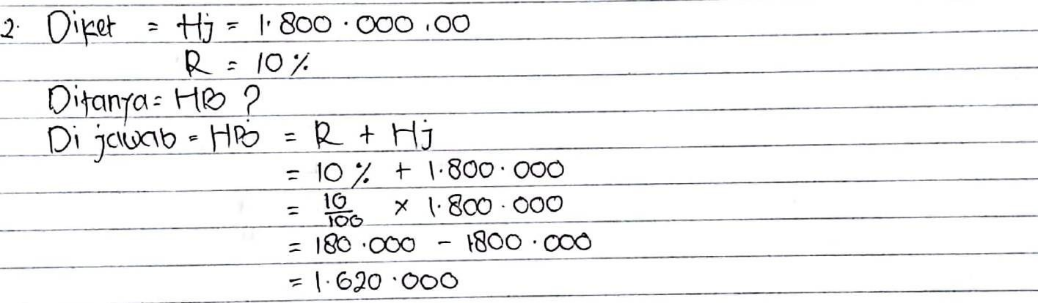 2. Diket = Hj = 1.800.000,00
R = 10%
Ditanya = HB ?
Di jawab = HB = R + Hj
= 10% + 1.800.000
= 10/100 × 1.800.000
= 180.000 - 1800.000
= 1.620.000